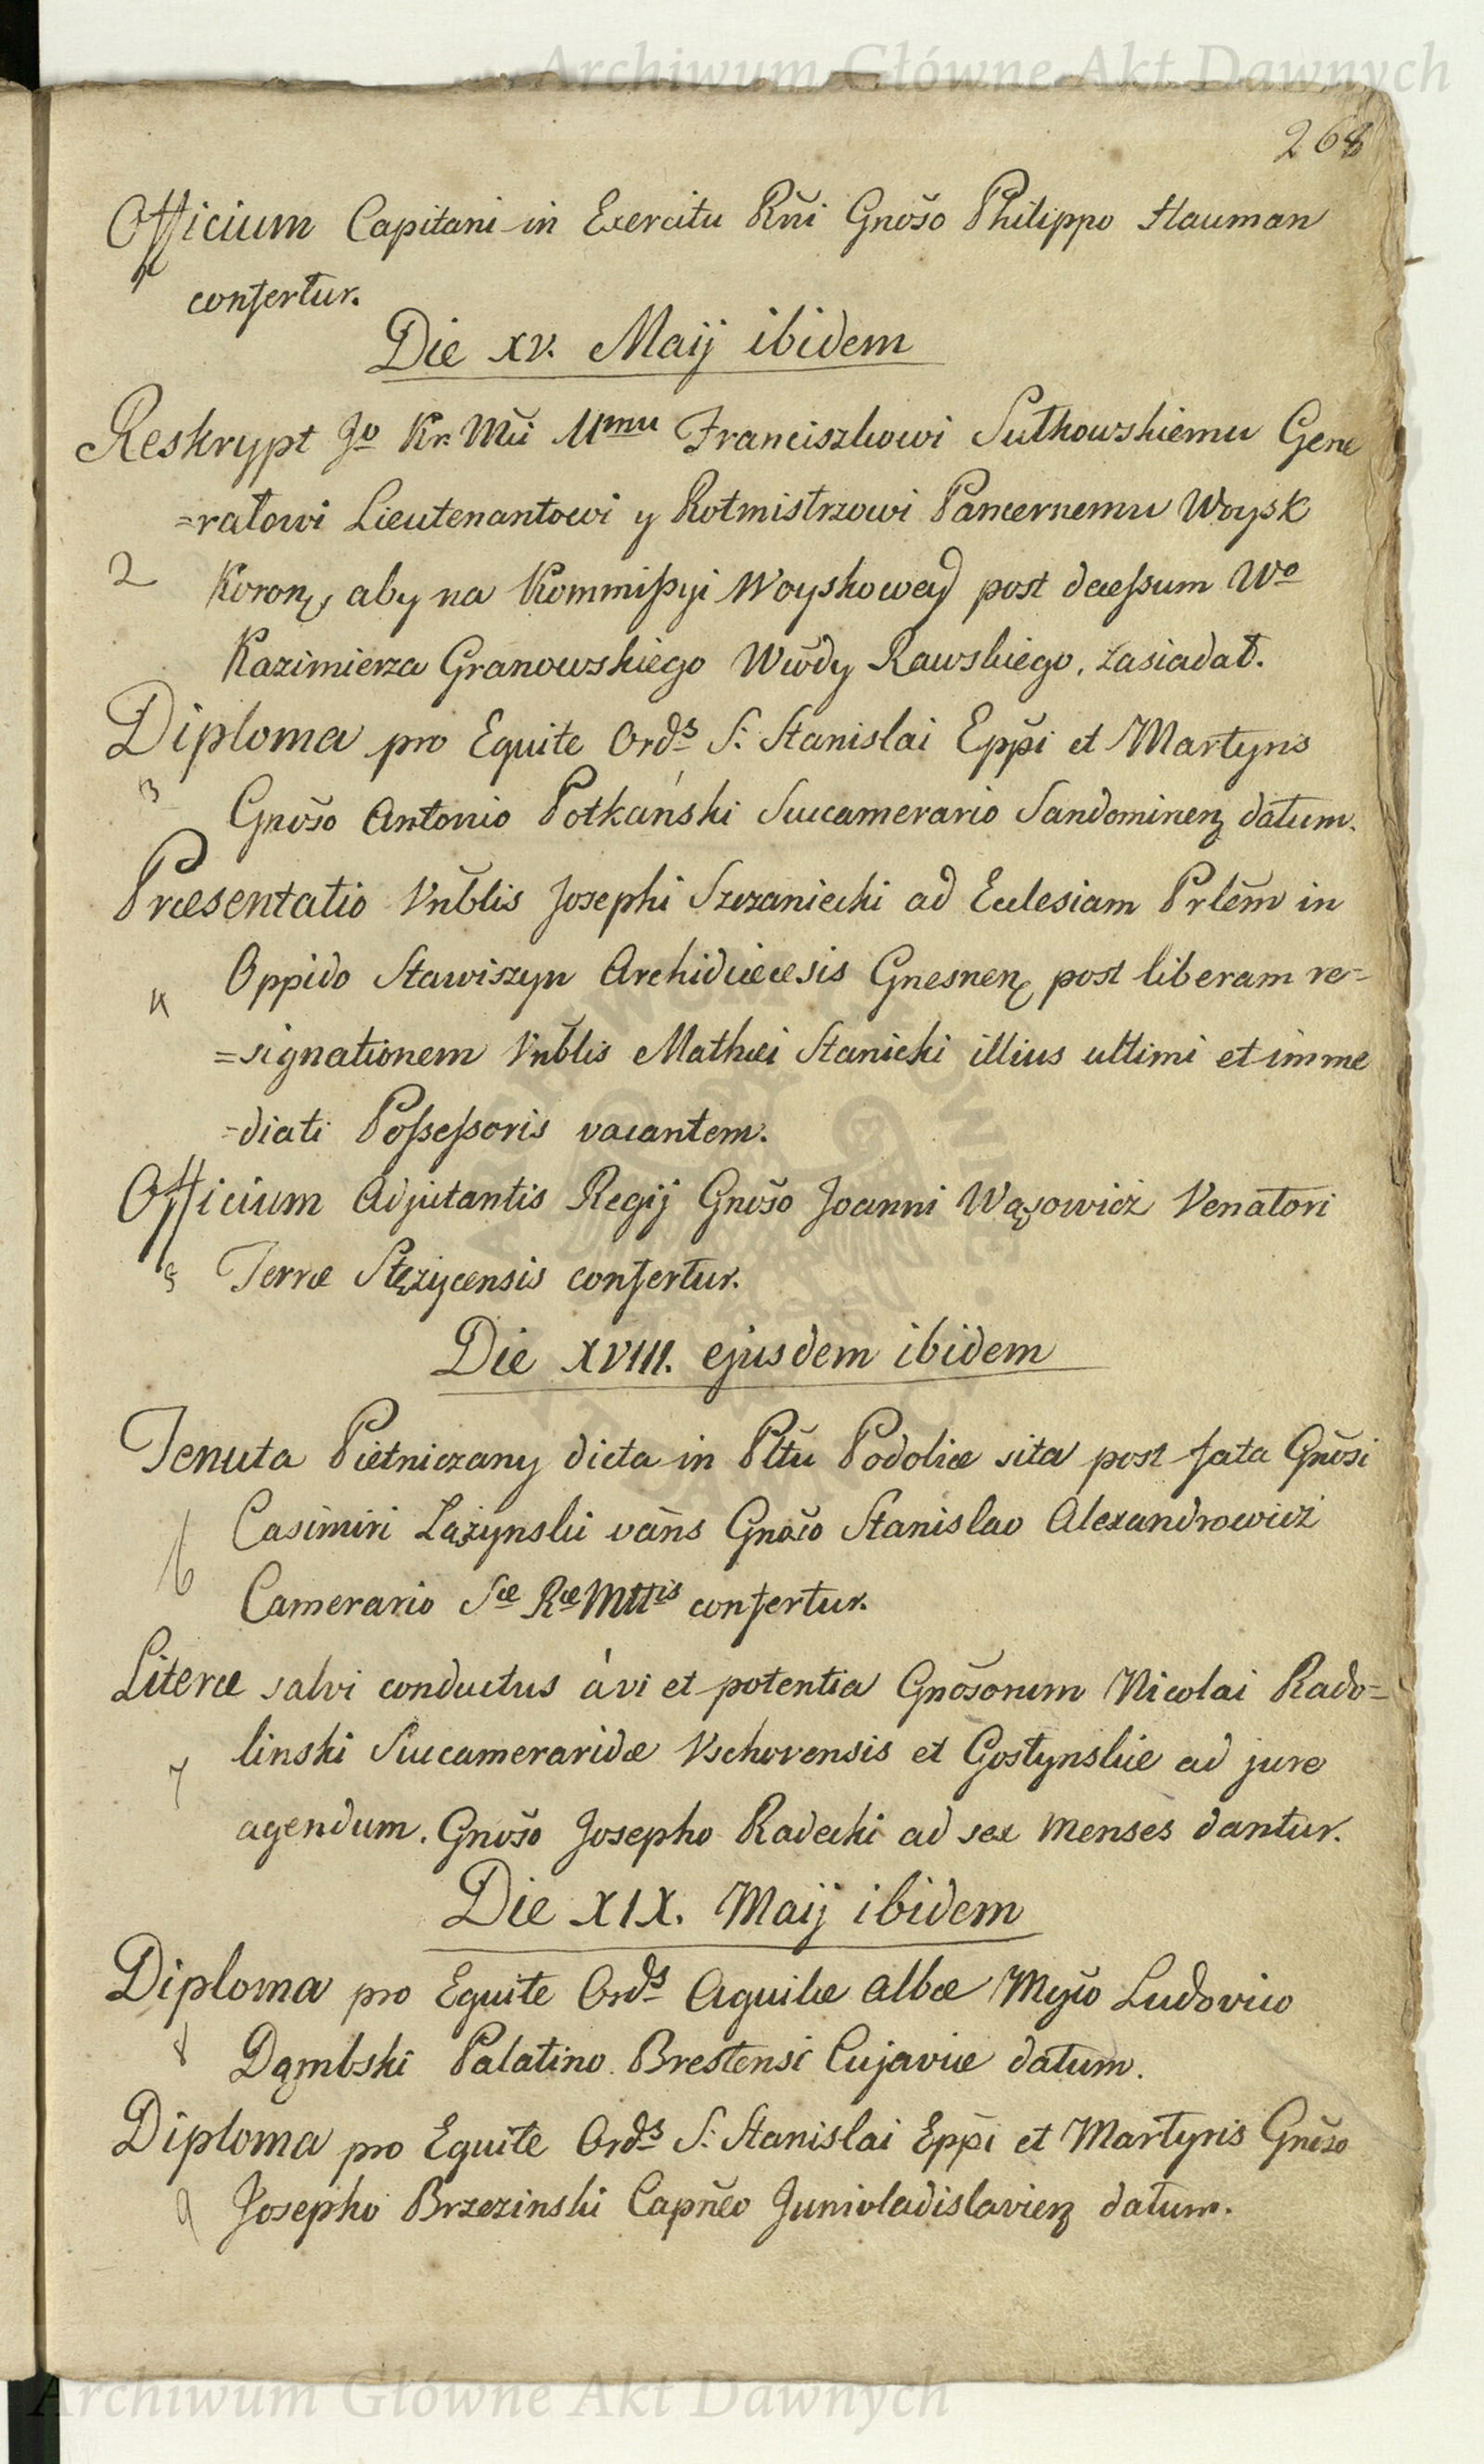 Archiwum Główne Akt Dawnych
268
Officium Capitani in Exercitu Rñi Gnoso Philippo Hauman
confertur.
Die XV. Maij ibidem
Reskrypt Jo Kr. Mći Umu Franciszkowi Sułkowskiemu Gene
=rałowi Lieutenantowi y Rotmistrzowi Pancernemu Woysk
2 Koron, aby na Kommißyi Woyskowey post deceßum Wo
Kazimierza Granowskiego Wwdy Rawskiego, zasiadał.
Diploma pro Equite Ords S. Stanislai Eppi et Martyris
3 Gnoso Antonio Potkański Succamerario Sandomirien datum.
Præsentatio Vnblis Josephi Szczaniecki ad Ecclesiam Prlem in
4 Oppido Stawiszyn Archidiœcesis Gnesnen post liberam re=
=signationem Vnblis Mathæi Stanicki illius ultimi et imme
=diati Poßeßoris vacantem.
Officium Adjutantis Regij Gnoso Joanni Wąsowicz Venatori
5 Terræ Stęzycensis confertur.
Die XVIII. ejusdem ibidem
Tenuta Pietniczany dicta in Pltu Podoliæ sita post fata Gnosi
6 Casimiri Łązynski vans Gnoso Stanislao Alexandrowicz
Camerario Sæ Ræ Mttis confertur.
Literæ salvi conductus à vi et potentia Gnosorum Nicolai Rado=
linski Succameraridæ Vschovensis et Gostynskie ad jure
7 agendum. Gnoso Josepho Radecki ad sex menses dantur.
Die XIX. Maij ibidem
Diploma pro Equite Ords Aquilæ albæ Mgco Ludovico
8 Dąmbski Palatino Brestensi Cujaviæ datum.
Diploma pro Equite Ords S. Stanislai Eppi et Martyris Gnoso
9 Josepho Brzezinski Capneo Junivladislavien datum.
Archiwum Główne Akt Dawnych